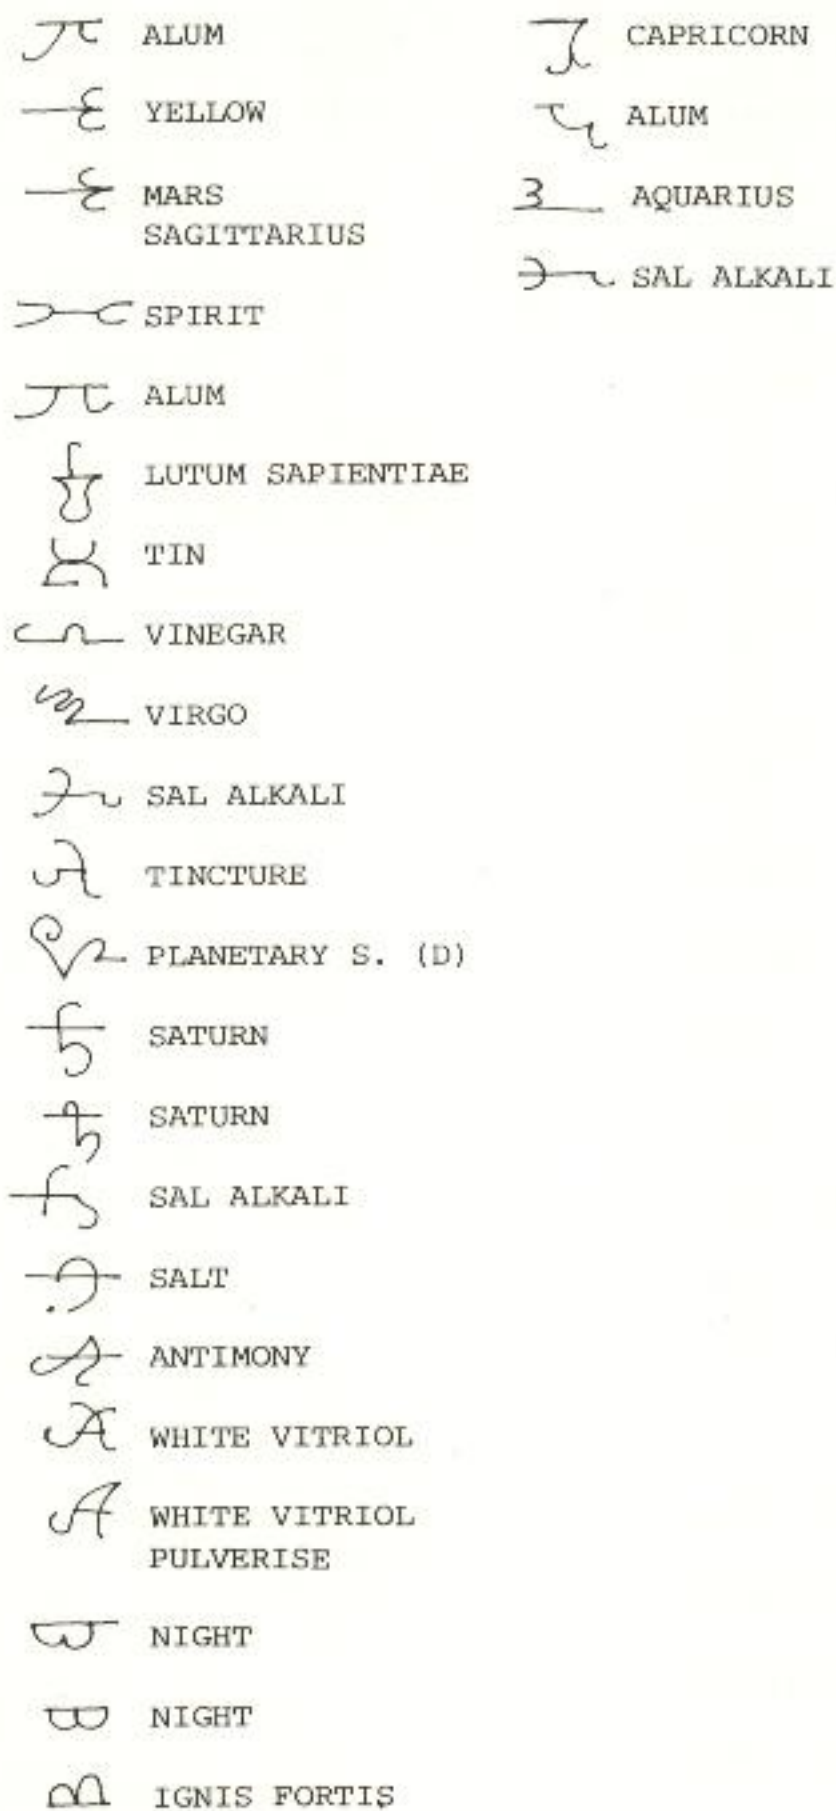 ALUM
YELLOW
MARS
SAGITTARIUS
SPIRIT
ALUM
LUTUM SAPIENTIAE
TIN
VINEGAR
VIRGO
SAL ALKALI
TINCTURE
PLANETARY S. (D)
SATURN
SATURN
SAL ALKALI
SALT
ANTIMONY
WHITE VITRIOL
WHITE VITRIOL
PULVERISE
NIGHT
NIGHT
IGNIS FORTIS
CAPRICORN
ALUM
AQUARIUS
SAL ALKALI